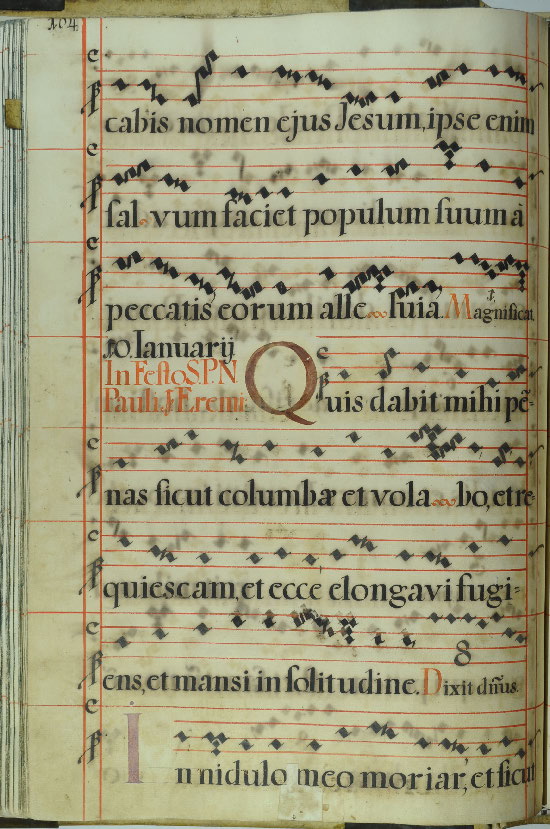 104.
cabis nomen ejus Jesum, ipse enim
sal vum faciet populum suum à
peccatis eorum alle luia. Magnificat
10. Ianuarij
In Festo S.P.N
Pauli J. Eremi.
Quis dabit mihi pẽ-
nas sicut columbæ et vola bo, et re-
quiescam, et ecce elongavi fugi-
ens, et mansi in solitudine. Dixit dñus.
8
In nidulo meo moriar, et sicut